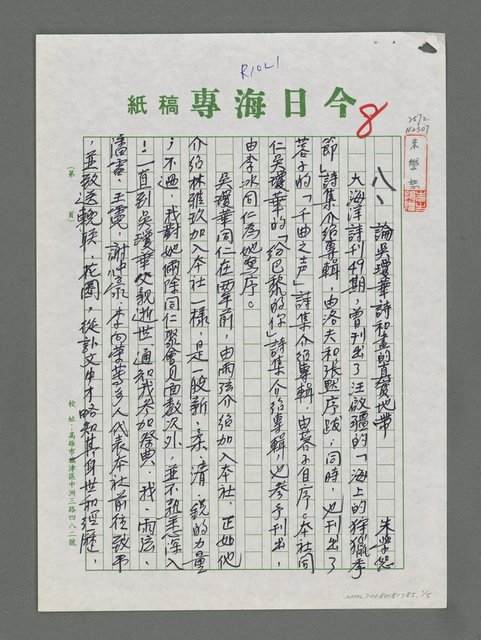 R1021
今日海專稿紙
8
朱學恕
八、論吳瓊華詩和畫的真實地帶
朱學恕
大海洋詩刊49期，曾刊出了汪啟疆的「海上的狩獵季
節」詩集介紹專輯，由洛夫和張默序跋，同時，也刊出了
蓉子的「千曲之声」詩集介紹專輯，由蓉子自序。本社同
仁吳瓊華的「給巴黎的你」詩集介紹專輯，也參予刊出，
由李冰同仁為她寫序。
吳瓊華同仁在两年前，由雨弦介紹加入本社，正如他
介紹林雅玟加入本社一樣，是一股新，柔，清，銳的力量
；不過，我對她倆除同仁聚會見面數次外，並不熟悉深入
！一直到吳瓊華父親逝世，通知我參加祭典，我、雨弦、
潘雷、王廣、謝 、李向榮等多人代表本社前往致弔
，並致送輓聯、花圈，從訃文中才略知其身世和經歷，
（第　　頁）
校址：高雄市旗津區中洲三路四八二號
NMTL20080181785, 1/5